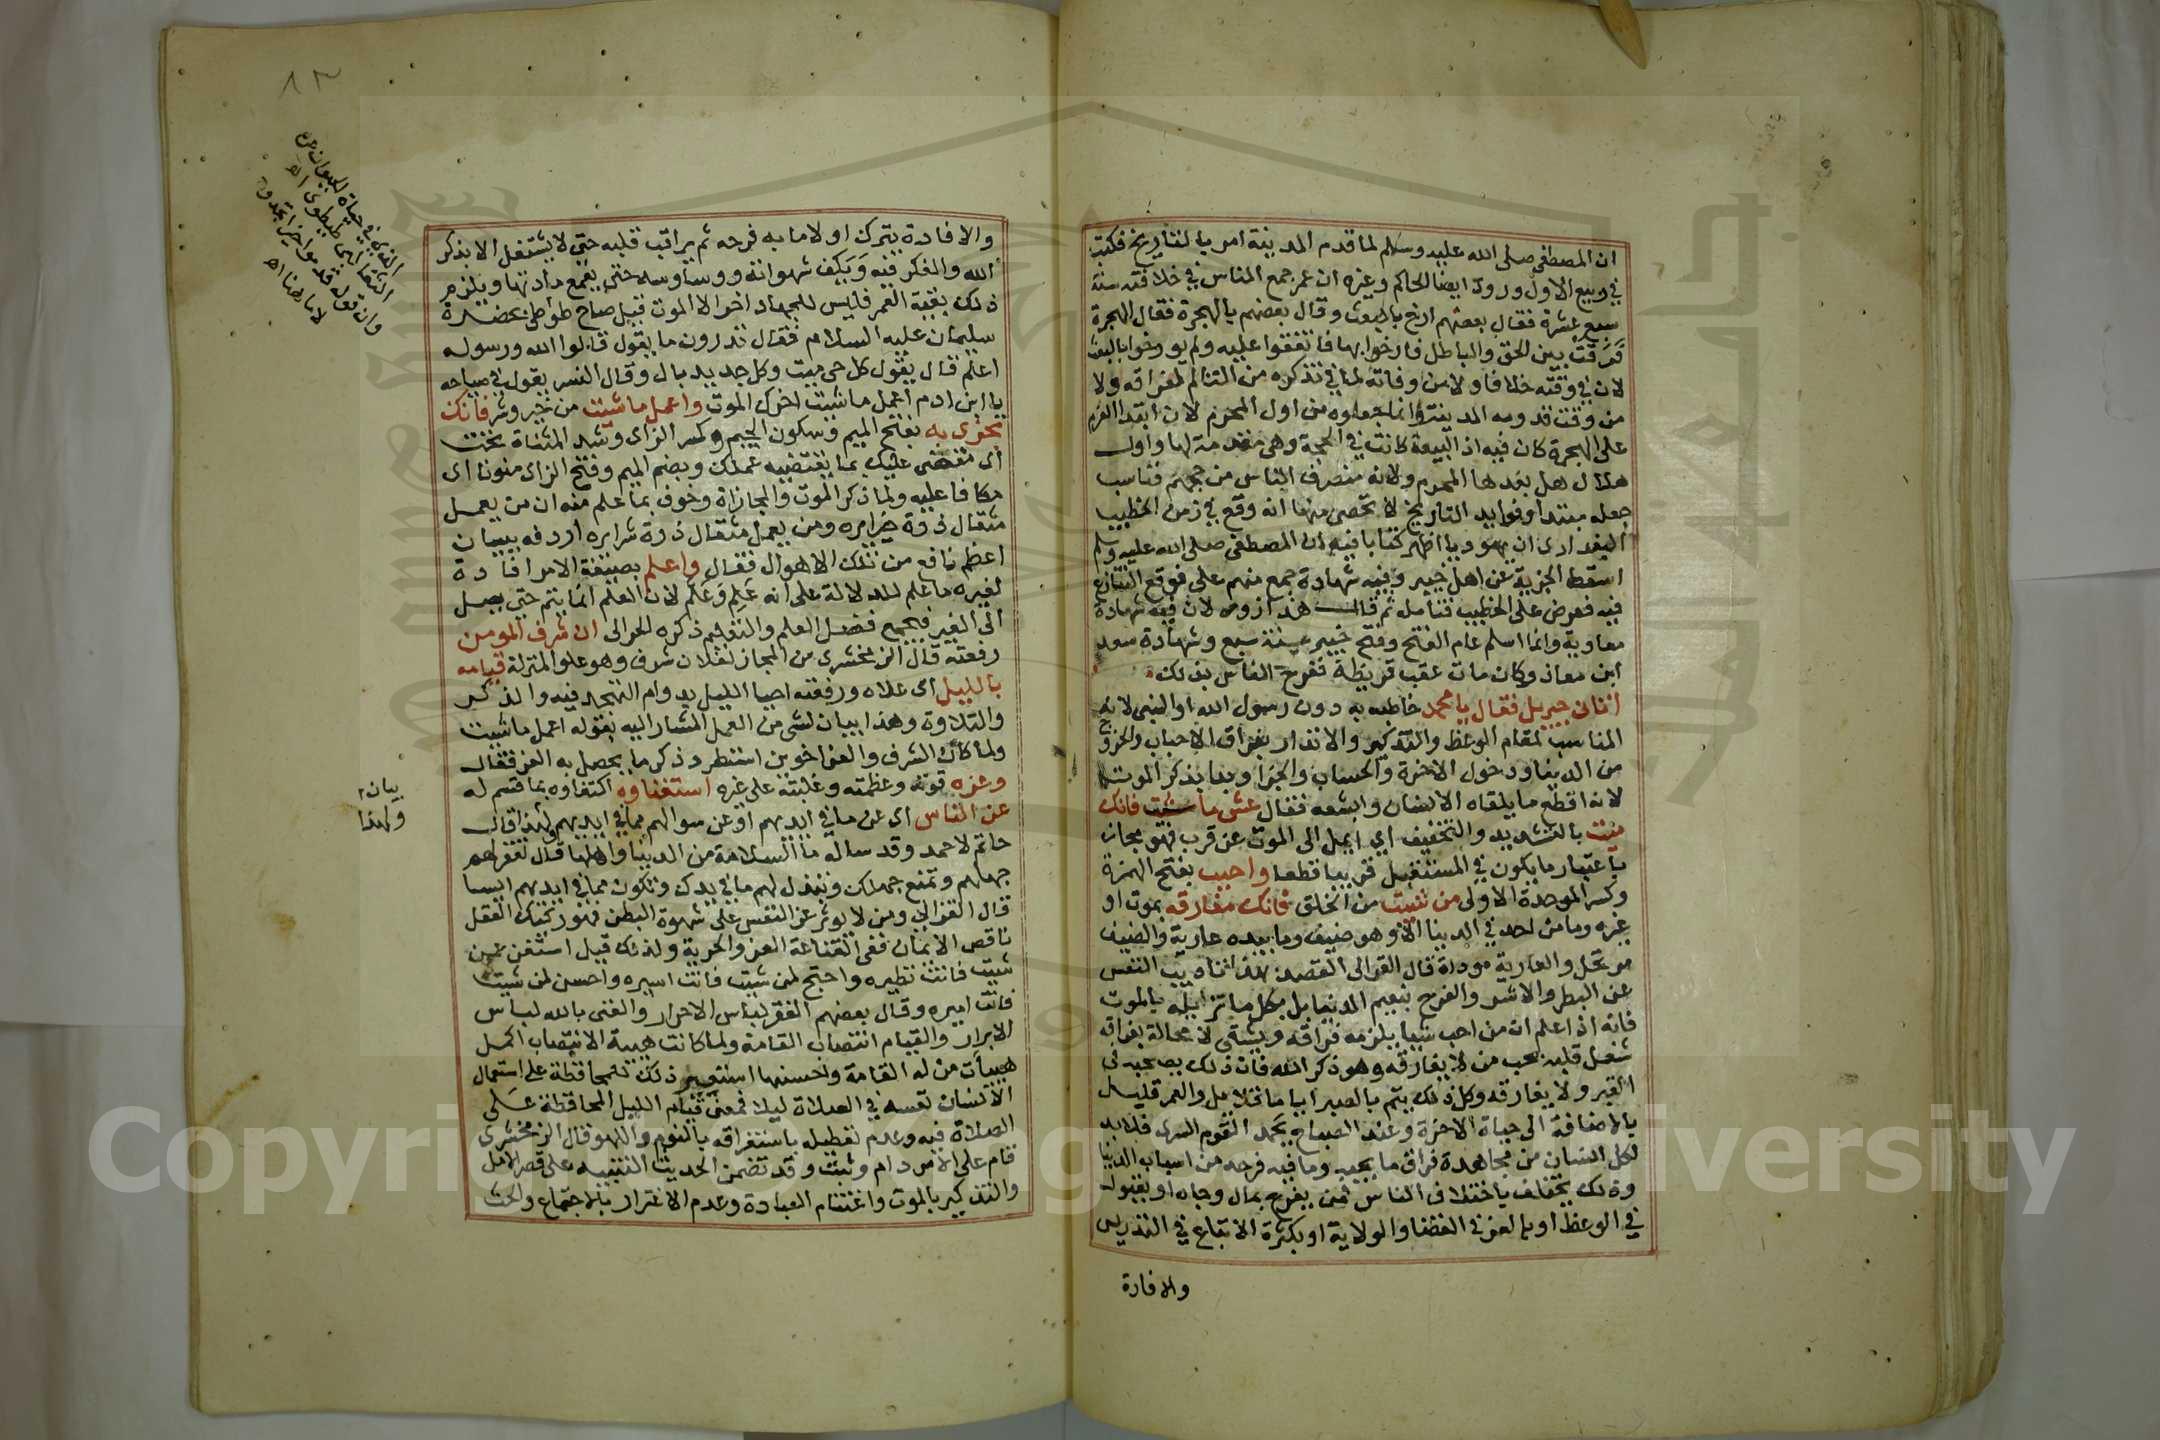 ان المصطفى صلى الله عليه وسلم لما قدم المدينة امر بالتاريخ فكتب
في ربيع الاول وروى ايضا الحاكم وغيره ان عمر جمع الناس في خلافته سنة
سبع عشرة فقال بعضهم ارخ بالمبعث وقال بعضهم بالهجرة فقال الهجرة
فرقت بين الحق والباطل فارخوا بها فاتفقوا عليه ولم يورخوا بالبعث
لان في وقته خلافا ولا من وفاته لما في تذكره من التالم لفراقه ولا
من وقت قدومه المدينة وانما جعلوه من اول المحرم لان ابتدا العزم
على الهجرة كان فيه اذ البيعة كانت في الحجة وهي مقدمة لها واول
هلال هل بعدها المحرم ولانه منصرف الناس من حجهم فناسب
جعله مبتدا وفوايد التاريخ لا تحصى منها انه وقع في زمن الخطيب
البغدادى ان يهوديا اظهر كتابا فيه ان المصطفى صلى الله عليه وسلم
اسقط الجزية عن اهل خيبر وفيه شهادة جمع منهم على فوقع التنازع
فيه فعرض على الخطيب فتامله ثم قال هذا زور لان فيه شهادة
معاوية وانما اسلم عام الفتح وفتح خيبر سنة سبع وشهادة سعد
ابن معاذ وكان مات عقب قريظة ففرح الناس بذلك
اتاني جبريل فقال يا محمد خاطبه به دون رسول الله او النبى لانه
المناسب لمقام الوعظ والتذكير والانذار بفراق الاحباب والخروج
من الدنيا ودخول الاخرة والحساب والجزا وبدا بذكر الموت
لانه افظع ما يلقاه الانسان وابشعه فقال عش ما شئت فانك
ميت بالتشديد والتخفيف اي ايل الى الموت عن قرب فهو مجاز
باعتبار ما يكون في المستقبل قريبا قطعا واحبب بفتح الهمزة
وكسر الموحدة الاولى من شئت من الخلق فانك مفارقه بموت او
غيره وما من احد في الدنيا الا وهو ضيف وما بيده عارية والضيف
مرتحل والعارية مودة قال الغزالى القصد بهذا تاديب النفس
عن البطر والاشر والفرح بنعيم الدنيا بل بكل ما تزايله بالموت
فانه اذا علم ان من احب شيا يلزمه فراقه ويشقى لا محالة بفراقه
شغل قلبه بحب من لا يفارقه وهو ذكر الله فان ذلك يصحبه في
القبر ولا يفارقه وكل ذلك يتم بالصبر اياما قلايل والعمر قليل
بالاضافة الى حياة الاخرة وعند الصباح يحمد القوم السرى فلا بد
لكل انسان من مجاهدة فراق ما يحبه وما فيه فرحه من اسباب الدنيا
وذلك يختلف باختلاف الناس فمن يفرح بمال وجاه او بقبول
في الوعظ او بالعز في القضا والولاية او بكثرة الاتباع في التدريس
والافادة
والافادة يترك اولا ما به فرحه ثم يراقب قلبه حتى لا يشتغل الا بذكر
الله والفكر فيه ويكف شهواته ووساوسه حتى يقمع مادتها ويلزم
ذلك بقية العمر فليس للجهاد اخر الا الموت قيل صاح طوطى بحضرة
سليمان عليه السلام فقال تدرون ما يقول قالوا الله ورسوله
اعلم قال يقول كل حى ميت وكل جديد بال وقال النسر يقول في صياحه
يا ابن ادم اعمل ما شئت اخرك الموت واعمل ما شئت من خير وشر فانك
مجزى به بفتح الميم وسكون الجيم وكسر الزاى وشد المثناة تحت
اى مقضى عليك بما يقتضيه عملك وبضم الميم وفتح الزاى منونا اى
مكافا عليه ولما ذكر الموت والمجازاة وخوف بما علم منه ان من يعمل
مثقال ذرة خيرا يره ومن يعمل مثقال ذرة شرا يره اردفه ببيان
اعظم نافع من تلك الاهوال فقال واعلم بصيغة الامر افادة
لغيره ما علم للدلالة على انه علم وعلم لان العلم انما يتم حتى يصل
الى الغير فيجمع فضل العلم والتعليم ذكره الحرالى ان شرف المومن
رفعته قال الزمخشرى من المجاز لفلان شرف وهو علو المنزلة قيامه
بالليل اى علاه ورفعته احيا الليل بدوام التهجد فيه والذكر
والتلاوة وهذا بيان لشى من العمل المشار اليه بقوله اعمل ما شئت
ولما كان الشرف والعز اخوين استطرد ذكر ما يحصل به العز فقال
وعزه قوته وعظمته وغلبته على غيره استغناوه اكتفاوه بما قسم له
عن الناس اى عن ما في ايديهم او عن سوالهم مما في ايديهم ولهذا قال
حاتم لاحمد وقد ساله ما السلامة من الدنيا واهلها قال تغفر لهم
جهلهم وتمنع جهلك وتبذل لهم ما في يدك وتكون مما في ايديهم ايسا
قال الغزالى ومن لا يوثر عز النفس على شهوة البطن فهو ركيك العقل
ناقص الايمان ففى القناعة العز والحرية ولذلك قيل استغن عن من
شئت فانت نظيره واحتج لمن شئت فانت اسيره واحسن لمن شئت
فانت اميره وقال بعضهم الفقر لباس الاحرار والغنى بالله لباس
الابرار والقيام انتصاب القامة ولما كانت هيبة الانتصاب اكمل
هييات من له القامة واحسنها استعير ذلك للمحافظة على استعمال
الانسان نفسه في الصلاة ليلا فمعنى قيام الليل المحافظة على
الصلاة فيه وعدم تعطيله باستغراقه بالنوم واللهو قال الزمخشرى
قام على الامر دام وثبت وقد تضمن الحديث التنبيه على قصر الامل
والتذكير بالموت واغتنام العبادة وعدم الاغترار بالاجتماع والحث
بيان
ولهذا
٨٣
Copyright © King Saud University